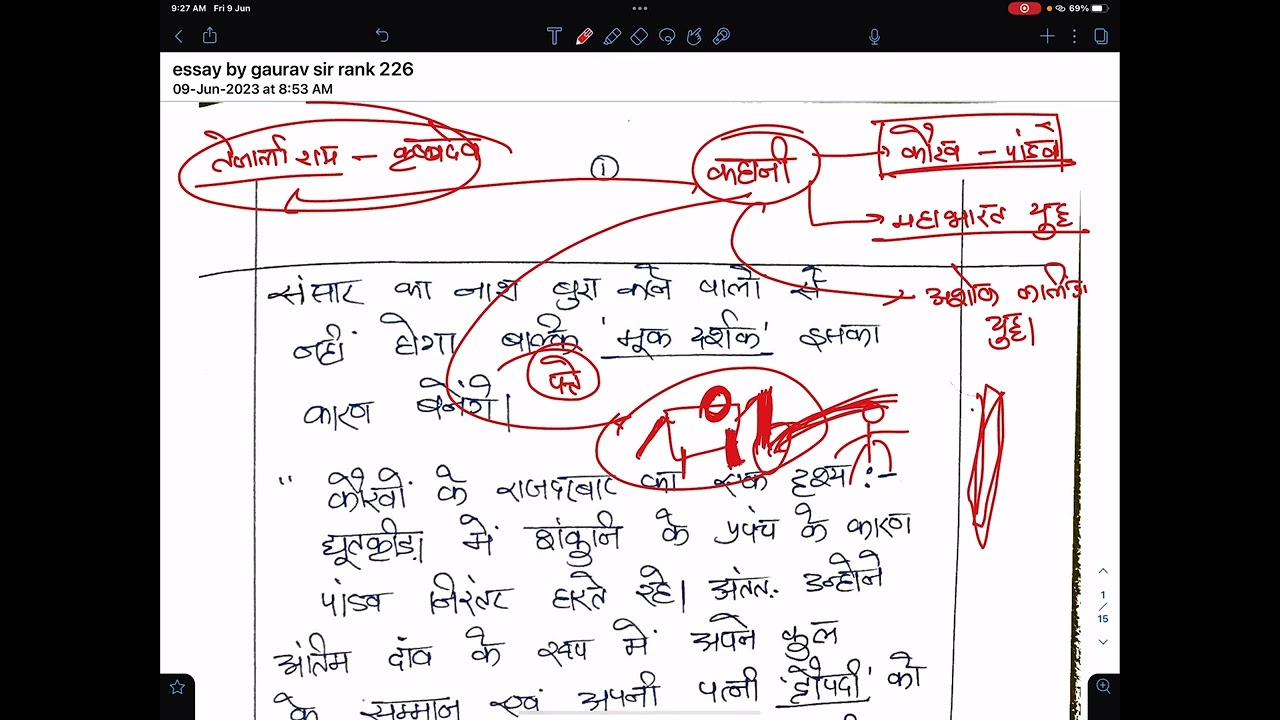 9:27 AM Fri 9 Jun
69%
essay by gaurav sir rank 226
09-Jun-2023 at 8:53 AM
तेनाली राम - कृष्णदेव
1
कहानी
कौरव - पांडव
महाभारत युद्ध
अशोक कलिंग
युद्ध।
संसार का नाश बुरा करने वालों से
नहीं होगा बल्कि 'मूक दर्शक' इसका
पत्ते
कारण बनेंगे।
" कौरवों के राजदरबार का एक दृश्य :-
द्यूतक्रीड़ा में शकुनि के प्रपंच के कारण
पांडव निरंतर हारते रहे। अंततः उन्होंने
अंतिम दांव के रूप में अपने कुल
के सम्मान एवं अपनी पत्नी 'द्रौपदी' को
1
/
15